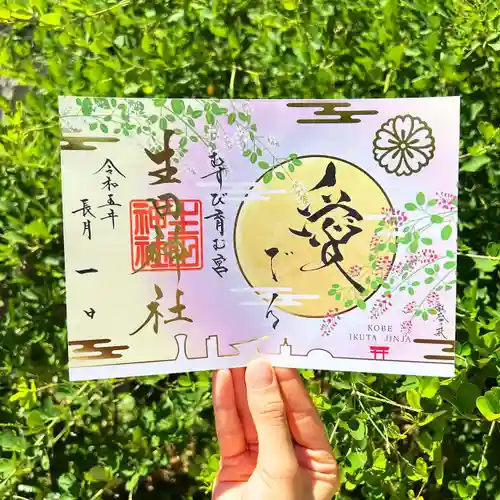 奉拝
愛でる
KOBE
IKUTA JINJA
むすび育む宮
生田神社
生田神社
令和五年
長月一日